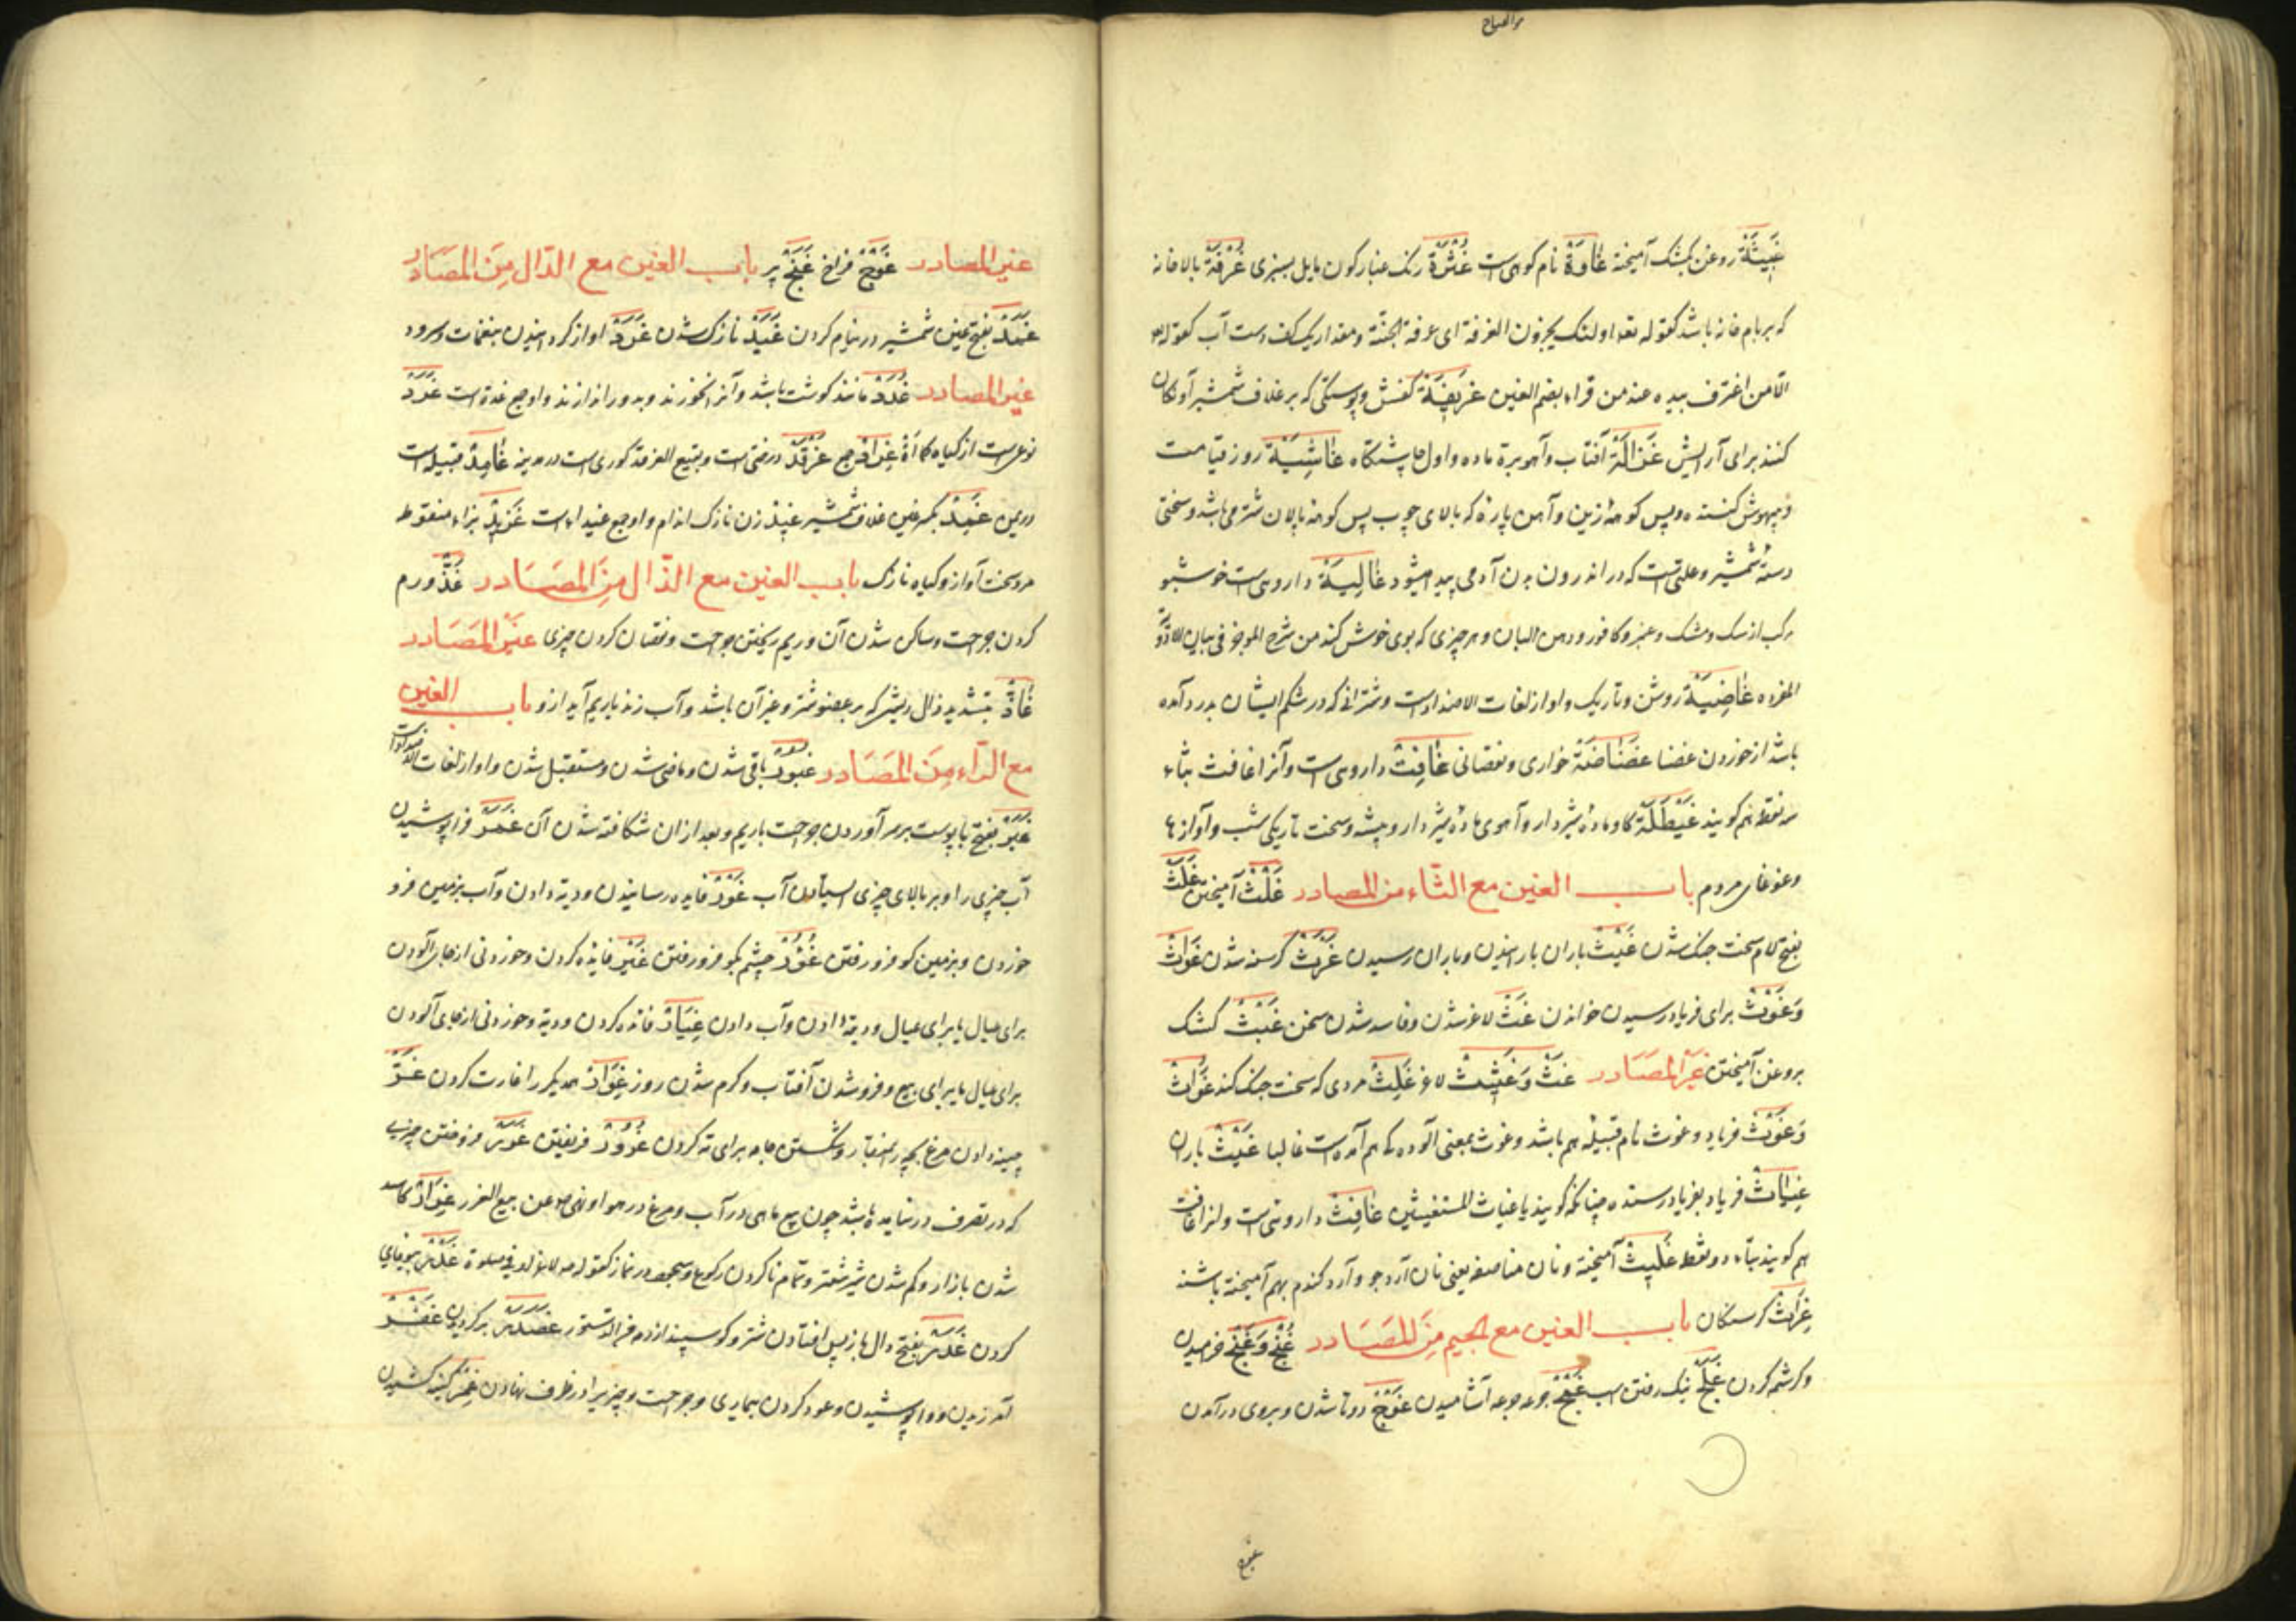 والصباح
غَبِیثَة روغن بکشک آمیخته غَاوَة نام کوهی است غُثْرَة رنک غبارکون مایل بسبزی غُرْفَة بالاخانه
که بر بام خانه باشد کقوله تعه اولئک یجزون الغرفة ای غرفة الجنّة و مقدار یک کف دست آب کقوله
الّا من اغترف بیده عند من قراء بضم الغین غَرِیفَة کفش و پوستکی که بر غلاف شمشیر آونکان
کنند برای آرایش غَزَالَة آفتاب و آهو بره ماده و اول چاشتکاه غَاشِیَة روز قیامت
و بیهوش کننده و پس کوهۀ زین و آهن پاره که بالای چوب پس کوهۀ پالان شتر می باشد و سختی
دستۀ شمشیر و علتی است که در اندرون بدن آدمی پیدا میشود غَالِیَة داروی است خوشبو
مرکب از سک و مشک و عنبر و کافور و دهن البان و هر چیزی که بوی خوش کند من شرح الموجز فی بیان الادویة
المفرده غَاضِیَة روشن و تاریک و او از لغات الاضداد است و شترانی که در شکم ایشان درد آمده
باشد از خوردن غضا غَضَاضَة خواری و نقصانی غَافِت داروی است و آنرا غافث بثاء
سه نقطه هم کویند غَیْطَلَة کاو ماده شیردار و آهوی ماده شیردار و بیشه و سخت تاریکی شب و آوازها
و غوغای مردم باب الغین مع الثاء من المصادر غَلْث آمیختن غَلَث
بفتح لام سخت جنک شدن غَیْث باران بارانیدن و باران رسیدن غَرَث کرسنه شدن غَوَاث
وَغَوْث برای فریاد رسیدن خواندن غَثّ لاغر شدن و فاسد شدن سخن غَبْث کشک
بروغن آمیختن غَیْر المَصَادر غَثّ وَ غَثِیث لاغر غَلِث مردی که سخت جنک کند غَوَاث
وَغَوْث فریاد و غوث نام قبیله هم باشد و غوث بمعنی آلوده که هم آمده است غالبا غَیْث باران
غِیَاث فریاد بفریاد رسنده چنانکه کویند یا غیاث المستغیثین غَافِث داروی است و انرا غافت
هم کویند بتاء دو نقطه غَلِیث آمیخته و نان مناصفه یعنی نان آرد جو و آرد کندم بهم آمیخته باشند
غِرَاث کرسنکان باب الغین مع الجیم مِنَ المَصَادر غُنْج وَ غَنَج خرامیدن
و کرشمه کردن غَلْج نیک رفتن اسب غَمْج جرعه جرعه آشامیدن غَوْج دوتا شدن و بروی در آمدن
غیر المصادر غَوْج فراخ غَنَج پیر باب الغین مع الدال مِنَ المصَادر
غَمْد بفتح غین شمشیر در نیام کردن غَیَد نازک شدن غَرَد آواز کردانیدن بنغمات و سرود
غیر المصادر غُدَد مانند کوشت باشد و آنرا نخورند و بدور اندازند و او جمع غدة است غَرَد
نوعی است از کیاه کماة غِرَاد جمع غَرْقَد درختی است و بقیع الغرقد کوری است در مدینه غَامِد قبیله است
در یمن غِمْد بکسر غین غلاف شمشیر غَید زن نازک اندام و او جمع غیداء است غَزِید بزاء منقوطه
مرد سخت آواز و کیاه نازک باب الغین مع الذال مِنَ المصَادر غَذّ ورم
کردن جراحت و ساکن شدن آن و ریم ریختن جراحت و نقصان کردن چیزی غَیْر المَصَادر
غَاذّ بتشدید ذال ریشی که بر عضو شتر و غیر آن باشد و آب زند یا ریم آید ازو باب الغین
مع الراء مِنَ المَصَادر غُبُور باقی شدن و ماضی شدن و مستقبل شدن و او از لغات الاضداد است
غَبَر بفتح با پوست بر سر آوردن جراحت با ریم و بعد ازان شکافته شدن آن غَمْر فرا پوشیدن
آب چیزی را و بر بالای چیزی ایستادن آب غَوْر فایده رسانیدن و دیة دادن و آب بزمین فرو
خوردن و بزمین کو فرو رفتن غُؤُر چشم بکو فرو رفتن غَیْر فایده کردن و خوردنی از جای آوردن
برای عیال یا برای عیال و دیة دادن و آب دادن غِیَار فائده کردن و دیة و خوردنی از جای آوردن
برای عیال یا برای بیع و فرو شدن آفتاب و کرم شدن روز غِوَار همدیکر را غارت کردن غَرّ
چینه دادن مرغ بچه را بمنقار و شکستن جامه برای ته کردن غُرُور فریفتن غَرَر فروختن چیزی
که در تصرف در نیامده باشد چون بیع ماهی در آب و مرغ در هوا و نهی عن بیع الغرر غِرَار کاسد
شدن بازار و کم شدن شیر شتر و تمام ناکردن رکوع و سجود در نماز کقوله لا غرار فی صلوة غَدْر بیوفایی
کردن غَدَر بفتح دال باز پس افتادن شتر و کوسپند از رمه
غَفْر
آمرزیدن و وا پوشیدن و عود کردن بیماری و جراحت و چیزی را در ظرف نهادن غِمْر کینه کشیدن